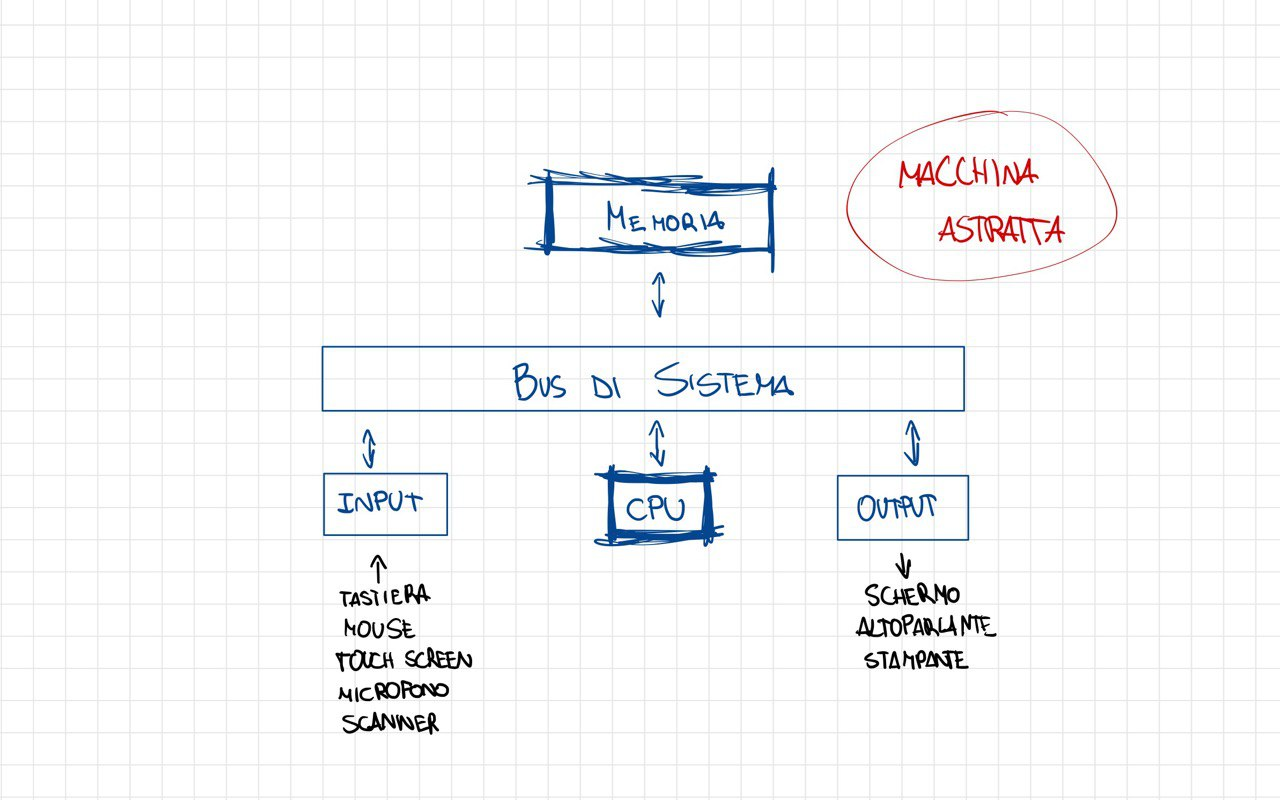 MACCHINA
ASTRATTA
MEMORIA
BUS DI SISTEMA
INPUT
CPU
OUTPUT
TASTIERA
MOUSE
TOUCH SCREEN
MICROFONO
SCANNER
SCHERMO
ALTOPARLANTE
STAMPANTE